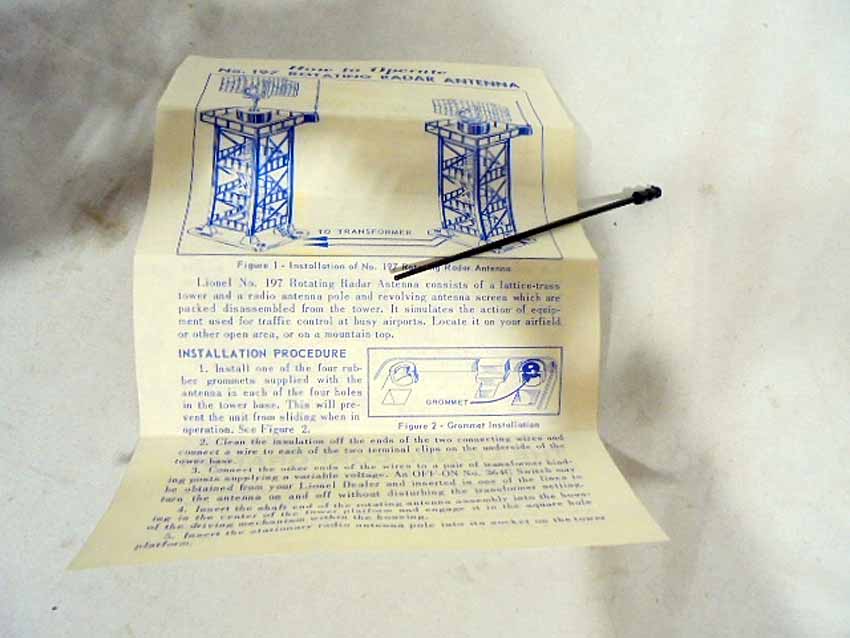 How to Operate
No. 197 ROTATING RADAR ANTENNA
TO TRANSFORMER
Figure 1 - Installation of No. 197 Rotating Radar Antenna
Lionel No. 197 Rotating Radar Antenna consists of a lattice-truss
tower and a radio antenna pole and revolving antenna screen which are
packed disassembled from the tower. It simulates the action of equip-
ment used for traffic control at busy airports. Locate it on your airfield
or other open area, or on a mountain top.
INSTALLATION PROCEDURE
1. Install one of the four rub-
ber grommets supplied with the
antenna is each of the four holes
in the tower base. This will pre-
vent the unit from sliding when in
operation. See Figure 2.
GROMMET
Figure 2 - Grommet Installation
2. Clean the insulation off the ends of the two connecting wires and
connect a wire to each of the two terminal clips on the underside of the
tower base.
3. Connect the other ends of the wires to a pair of transformer bind-
ing posts supplying a variable voltage. An OFF-ON No. 364C Switch may
be obtained from your Lionel Dealer and inserted in one of the lines to
turn the antenna on and off without disturbing the transformer setting.
4. Insert the shaft end of the rotating antenna assembly into the hous-
ing in the center of the tower platform and engage it in the square hole
of the driving mechanism within the housing.
5. Insert the stationary radio antenna pole into its socket on the tower
platform.